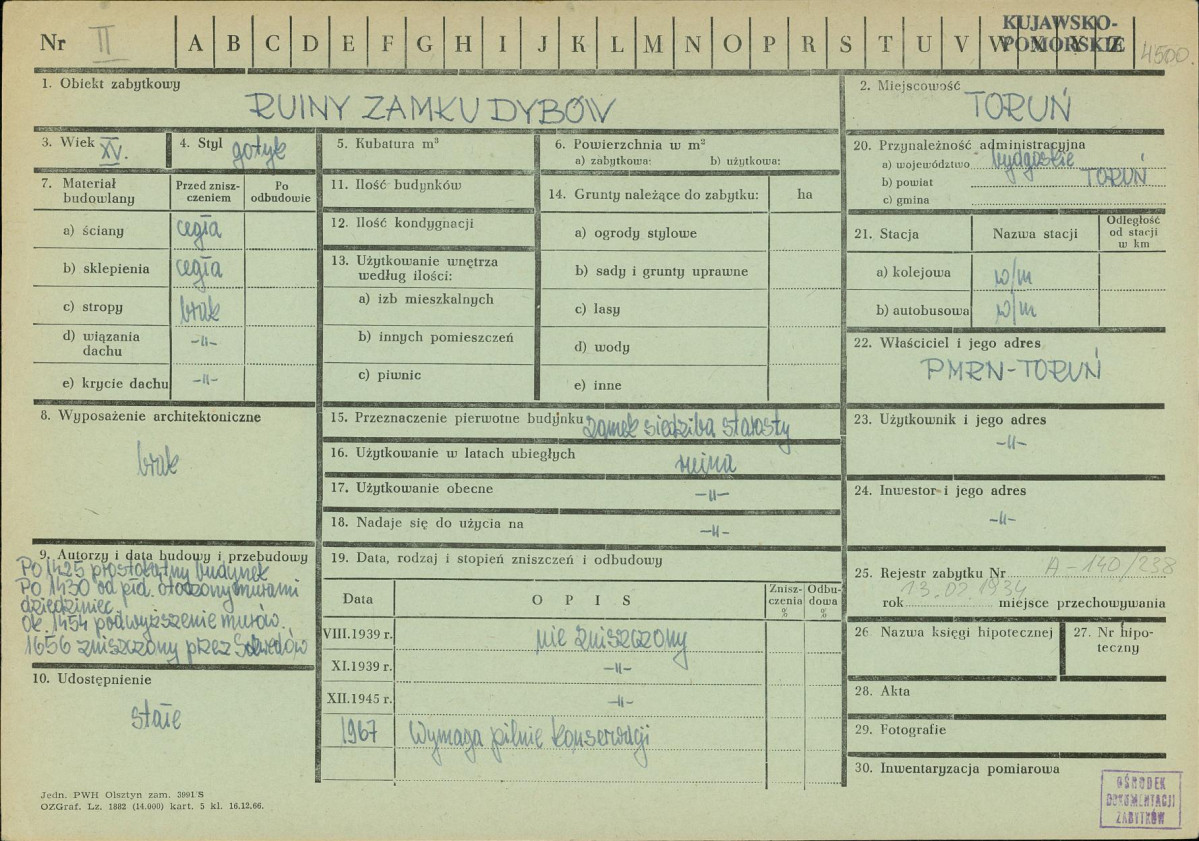 Nr II A B C D E F G H I J K L M N O P R S T U V W X Y Z
KUJAWSKO-
POMORSKIE
4500.
1. Obiekt zabytkowy
RUINY ZAMKU DYBÓW
2. Miejscowość
TORUŃ
3. Wiek XV.
4. Styl gotyk
5. Kubatura m³
6. Powierzchnia w m²
a) zabytkowa: b) użytkowa:
20. Przynależność administracyjna
a) województwo bydgoskie
b) powiat TORUŃ
c) gmina
7. Materiał budowlany
Przed znisz-
czeniem
Po
odbudowie
a) ściany cegła
b) sklepienia cegła
c) stropy brak
d) wiązania
dachu -11-
e) krycie dachu -11-
11. Ilość budynków
12. Ilość kondygnacji
13. Użytkowanie wnętrza
według ilości:
a) izb mieszkalnych
b) innych pomieszczeń
c) piwnic
14. Grunty należące do zabytku: ha
a) ogrody stylowe
b) sady i grunty uprawne
c) lasy
d) wody
e) inne
21. Stacja Nazwa stacji
Odległość
od stacji
w km
a) kolejowa w/m
b) autobusowa w/m
22. Właściciel i jego adres
PMRN-TORUŃ
8. Wyposażenie architektoniczne
brak
15. Przeznaczenie pierwotne budynku zamek siedziba starosty
16. Użytkowanie w latach ubiegłych ruina
17. Użytkowanie obecne -11-
18. Nadaje się do użycia na -11-
23. Użytkownik i jego adres
-11-
24. Inwestor i jego adres
-11-
9. Autorzy i data budowy i przebudowy
Po 1425 prostokątny budynek
Po 1430 od płd. otoczony murami
dziedziniec.
Ok. 1454 podwyższenie murów.
1656 zniszczony przez Szwedów
10. Udostępnienie
stałe
19. Data, rodzaj i stopień zniszczeń i odbudowy
Data OPIS
Znisz-
czenia
%
Odbu-
dowa
%
VIII.1939 r. nie zniszczony
XI.1939 r. -11-
XII.1945 r. -11-
1967 Wymaga pilnie konserwacji
25. Rejestr zabytku Nr A-140/238
rok 13.02.1934 miejsce przechowywania
26. Nazwa księgi hipotecznej
27. Nr hipo-
teczny
28. Akta
29. Fotografie
30. Inwentaryzacja pomiarowa
OŚRODEK
DOKUMENTACJI
ZABYTKÓW
Jedn. PWH Olsztyn zam. 3991 S
OZGraf. Lz. 1882 (14.000) kart. 5 kl. 16.12.66.